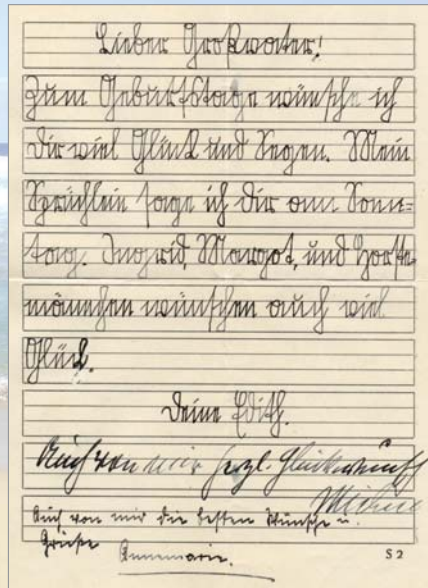 Lieber Großvater!
Zum Geburtstage wünsche ich
Dir viel Glück und Segen. Mein
Sprüchlein sage ich Dir am Sonn=
tag. Ingrid, Margot, und Horste-
männchen wünschen auch viel
Glück.
Deine Edith.
Auch von mir herzl. Glückwunsch
Auch von mir die besten Wünsche u.
Grüße Annemarie.
S 2